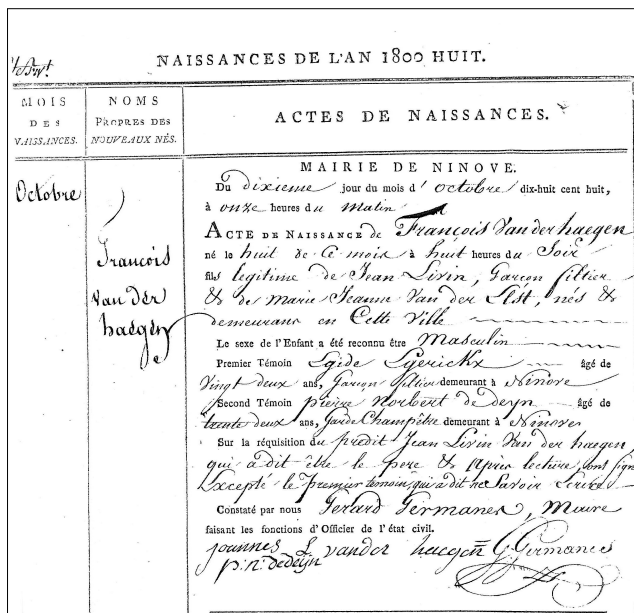 NAISSANCES DE L'AN 1800 HUIT.
MOIS
DES
NAISSANCES.
NOMS
PROPRES DES
NOUVEAUX NÉS.
ACTES DE NAISSANCES.
Octobre
François
Van der
haegen
MAIRIE DE NINOVE.
Du dixieme jour du mois d'octobre dix-huit cent huit,
à onze heures du matin
ACTE DE NAISSANCE de François Van der haegen
né le huit de ce mois à huit heures du Soir
fils legitime de Jean Livin, Garçon filtier
& de Marie Jeanne Van der Elst, nés &
demeurans en Cette Ville
Le sexe de l'Enfant a été reconnu être Masculin
Premier Témoin Egide Egerickx âgé de
Vingt deux ans, Garçon filtier demeurant à Ninove
Second Témoin pierre Norbert de deyn âgé de
trente deux ans, Garde Champêtre demeurant à Ninove
Sur la réquisition du predit Jean Livin Van der haegen
qui à dit être le pere & Après lecture, ont signé
Excepté le Premier temoin, qui à dit ne Savoir Ecrire
Constaté par nous Gerard Germanes, Maire
faisant les fonctions d'Officier de l'état civil.
joannes L vander haegen G Germanes
p: n: dedeyn